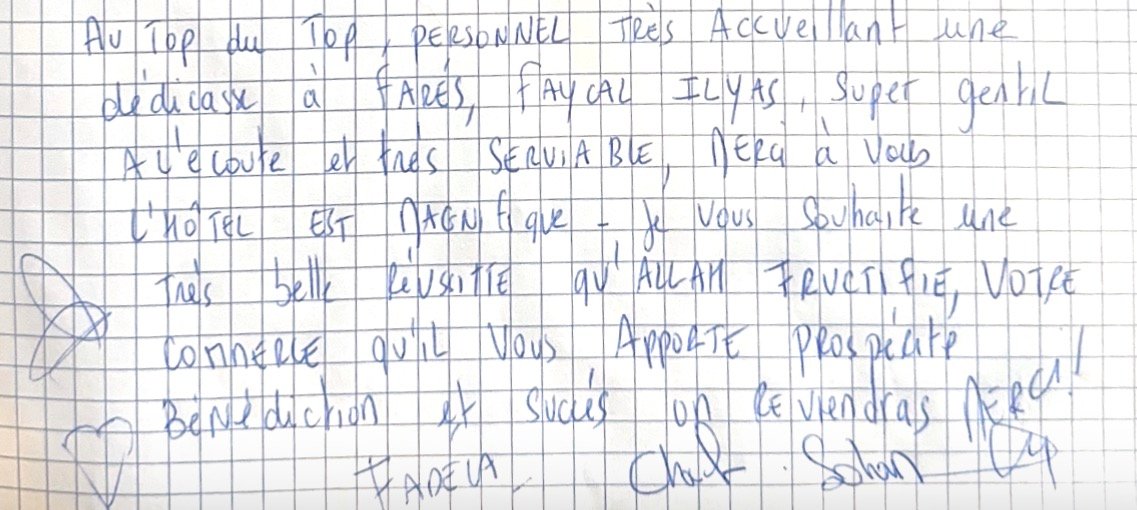 Au Top du Top, PERSONNEL TRÈS Accueillant une
dédicasse à FARÈS, FAYCAL ILYAS, Super gentil
A L'écoute et très SERVIABLE, MERCI à Vous
L'HÔTEL EST MAGNIfique - Je Vous Souhaite une
Très belle RéUSSITTE qu'ALLAH FRUCTIFIE, VOTRE
COMMERCE qu'iL Vous APPORTE PROSpéRité
BéNédiction et Succès on REVIENdras MERCI!
FADELA - Sohan